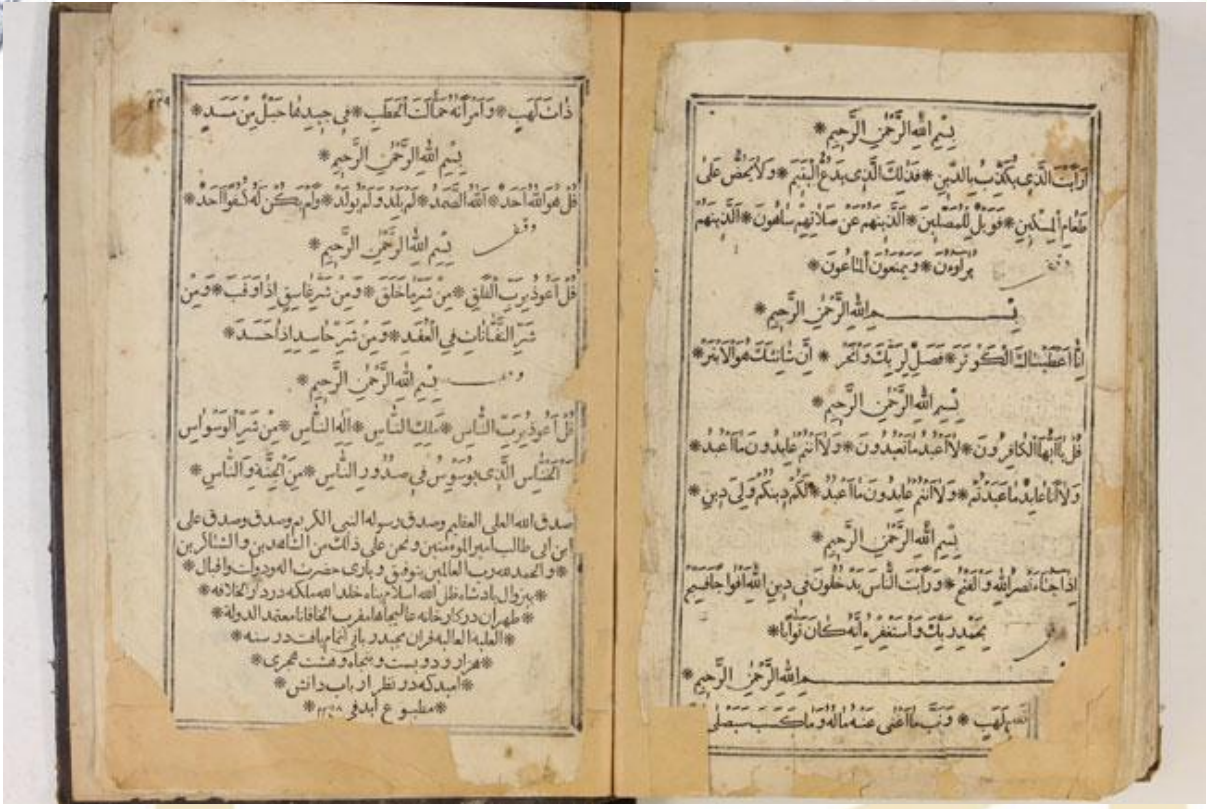 بِسْمِ اللهِ الرَّحْمٰنِ الرَّحِيمِ *
اَرَاَيْتَ الَّذِي يُكَذِّبُ بِالدِّينِ * فَذٰلِكَ الَّذِي يَدُعُّ الْيَتِيمَ * وَلَا يَحُضُّ عَلٰى
طَعَامِ الْمِسْكِينِ * فَوَيْلٌ لِلْمُصَلِّينَ * اَلَّذِينَهُمْ عَنْ صَلَاتِهِمْ سَاهُونَ * اَلَّذِينَهُمْ
يُرَاؤُنَ * وَيَمْنَعُونَ الْمَاعُونَ *
وقف
بِسْمِ اللهِ الرَّحْمٰنِ الرَّحِيمِ *
اِنَّا اَعْطَيْنَاكَ الْكَوْثَرَ * فَصَلِّ لِرَبِّكَ وَانْحَرْ * اِنَّ شَانِئَكَ هُوَ الْاَبْتَرُ *
بِسْمِ اللهِ الرَّحْمٰنِ الرَّحِيمِ *
قُلْ يَا اَيُّهَا الْكَافِرُونَ * لَا اَعْبُدُ مَا تَعْبُدُونَ * وَلَا اَنْتُمْ عَابِدُونَ مَا اَعْبُدُ *
وَلَا اَنَا عَابِدٌ مَا عَبَدْتُمْ * وَلَا اَنْتُمْ عَابِدُونَ مَا اَعْبُدُ * لَكُمْ دِينُكُمْ وَلِيَ دِينِ *
بِسْمِ اللهِ الرَّحْمٰنِ الرَّحِيمِ *
اِذَا جَاءَ نَصْرُ اللهِ وَالْفَتْحُ * وَرَاَيْتَ النَّاسَ يَدْخُلُونَ فِي دِينِ اللهِ اَفْوَاجًا فَسَبِّحْ
بِحَمْدِ رَبِّكَ وَاسْتَغْفِرْهُ اِنَّهُ كَانَ تَوَّابًا *
بِسْمِ اللهِ الرَّحْمٰنِ الرَّحِيمِ *
لَهَبٍ * وَتَبَّ مَا اَغْنٰى عَنْهُ مَالُهُ وَمَا كَسَبَ سَيَصْلٰى
ذَاتَ لَهَبٍ * وَامْرَاَتُهُ حَمَّالَتَ الْحَطَبِ * فِي جِيدِهَا حَبْلٌ مِنْ مَسَدٍ *
بِسْمِ اللهِ الرَّحْمٰنِ الرَّحِيمِ *
قُلْ هُوَ اللهُ اَحَدٌ * اَللهُ الصَّمَدُ * لَمْ يَلِدْ وَلَمْ يُولَدْ * وَلَمْ يَكُنْ لَهُ كُفُوًا اَحَدٌ *
وقف
بِسْمِ اللهِ الرَّحْمٰنِ الرَّحِيمِ *
قُلْ اَعُوذُ بِرَبِّ الْفَلَقِ * مِنْ شَرِّ مَا خَلَقَ * وَمِنْ شَرِّ غَاسِقٍ اِذَا وَقَبَ * وَمِنْ
شَرِّ النَّفَّاثَاتِ فِي الْعُقَدِ * وَمِنْ شَرِّ حَاسِدٍ اِذَا حَسَدَ *
بِسْمِ اللهِ الرَّحْمٰنِ الرَّحِيمِ *
قُلْ اَعُوذُ بِرَبِّ النَّاسِ * مَلِكِ النَّاسِ * اِلٰهِ النَّاسِ * مِنْ شَرِّ الْوَسْوَاسِ
الْخَنَّاسِ الَّذِي يُوَسْوِسُ فِي صُدُورِ النَّاسِ * مِنَ الْجِنَّةِ وَالنَّاسِ *
صدق الله العلى العظيم وصدق رسوله النبى الكريم وصدق وصدق على
ابن ابى طالب امير المومنين ونحن على ذلك من الشاهدين و الشاكرين
* والحمد لله رب العالمين بتوفيق و يارى حضرت اله ودولت واقبال *
* بيزوال پادشاه ظل الله اسلام پناه خلد الله ملكه در دار الخلافه *
* طهران در كارخانه عاليجاها مقرب الخاقانا معتمد الدولة *
* العلية العالية قران مجيد ربانى اتمام يافت در سنه *
* هزار و دويست و پنجاه وهشت هجرى *
* اميد كه در نظر ارباب دانش *
* مطبوع ايد فى ۱۲۵۸ *